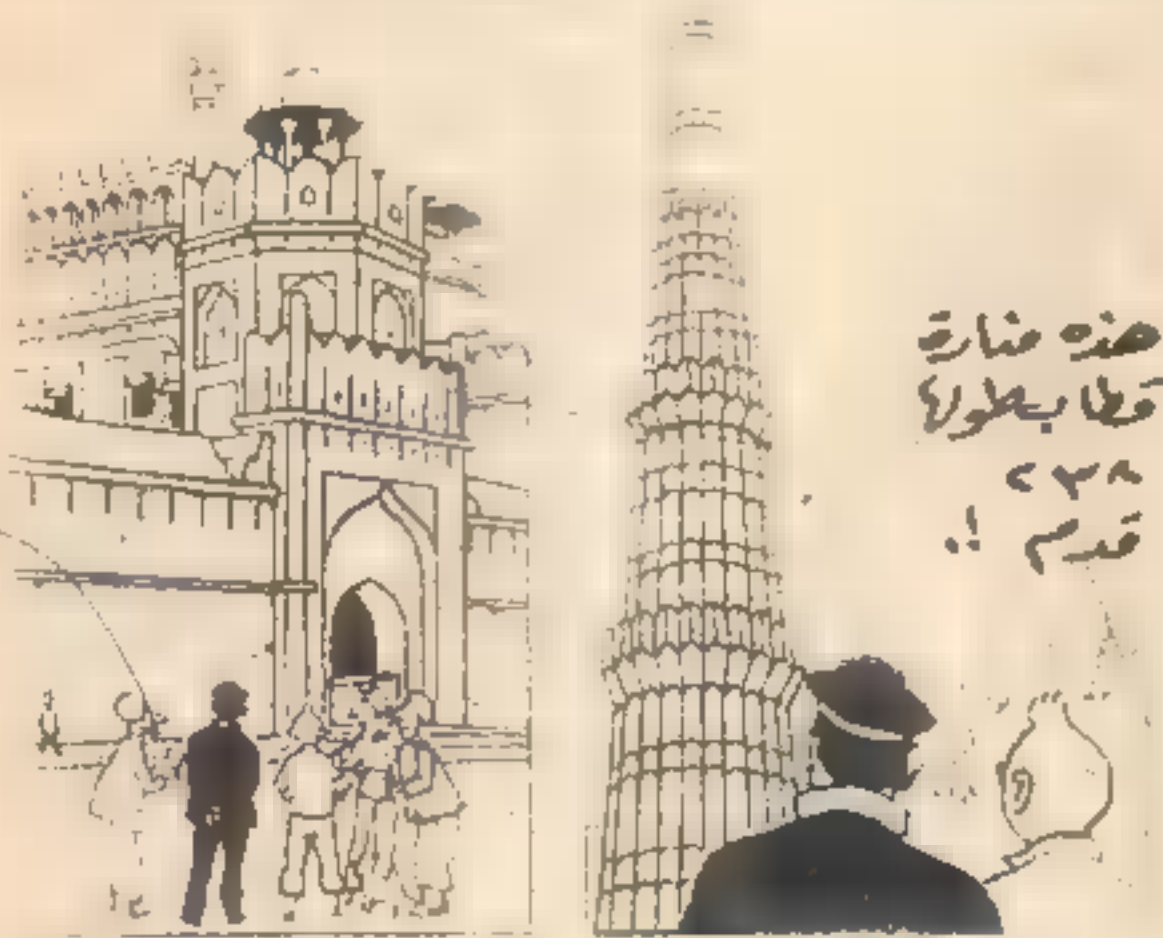 هذه منارة
قطاب طولها
٢٣٨
قدم !.